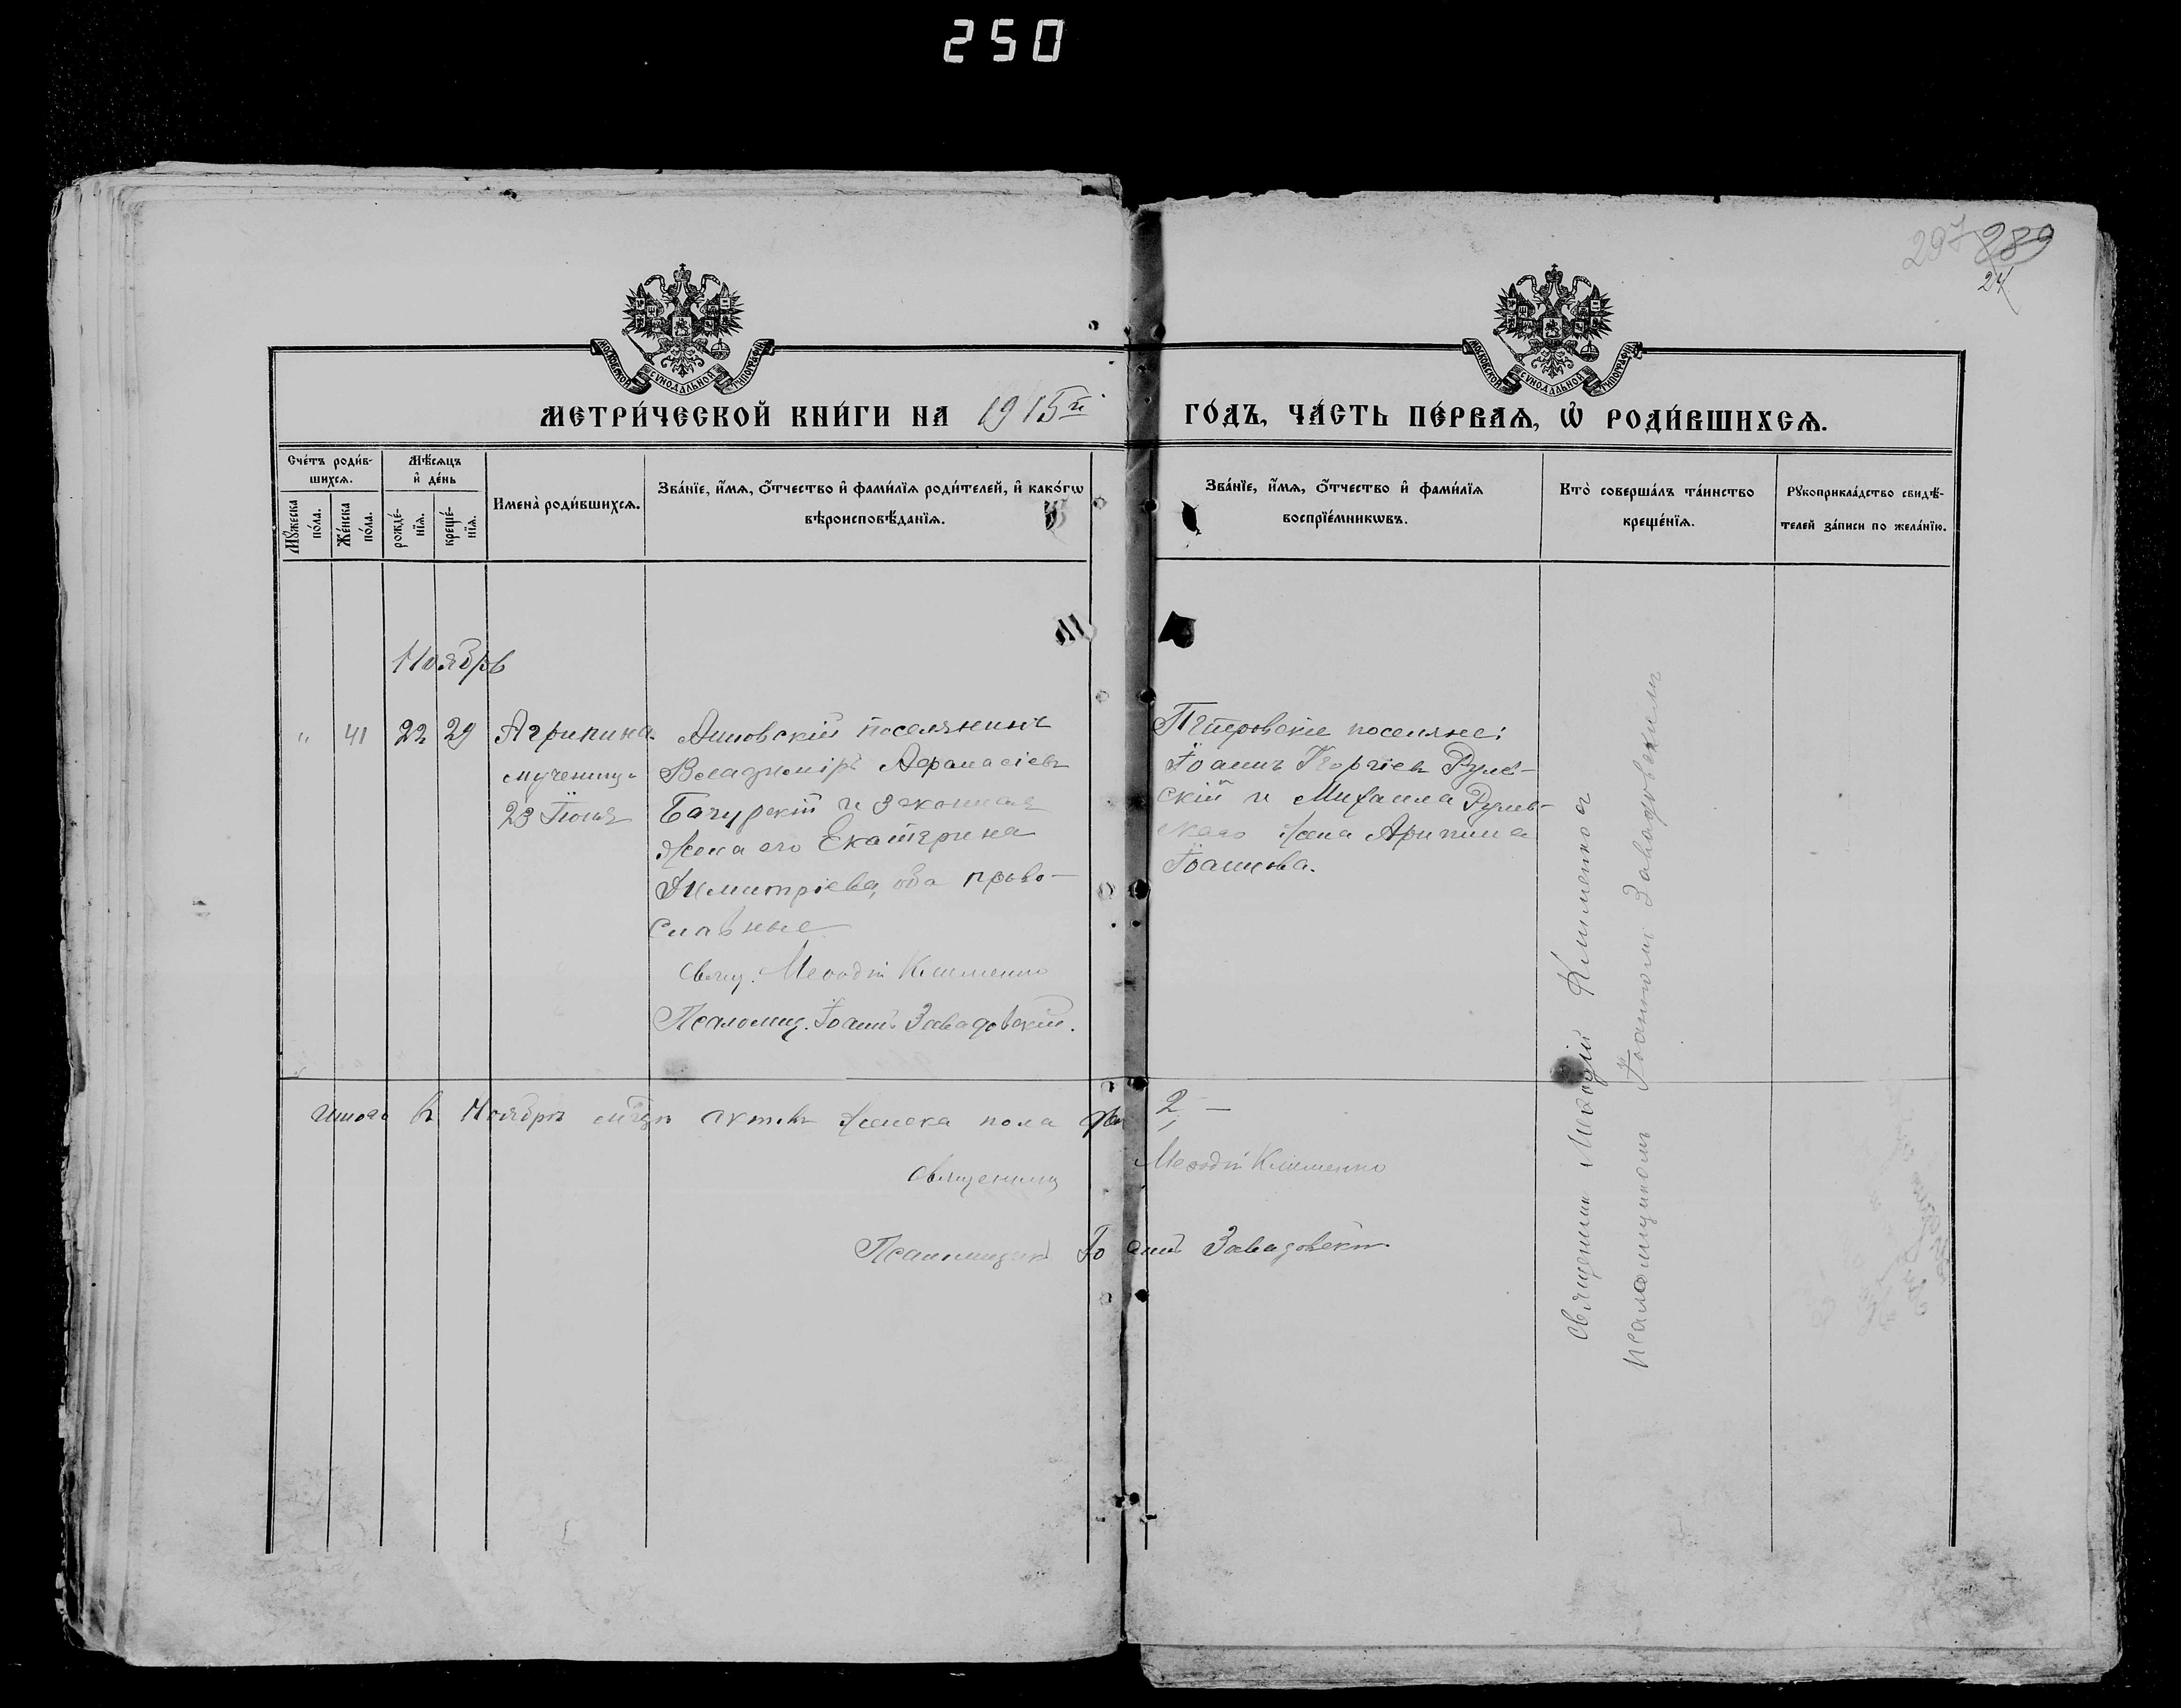 250
297 289
24
МОСКОВСКОЙ СѴНОДАЛЬНОЙ ТИПОГРАФІИ
МОСКОВСКОЙ СѴНОДАЛЬНОЙ ТИПОГРАФІИ
МЕТРИ́ЧЕСКОЙ КНИ́ГИ НА 1915й ГО́ДЪ, ЧА́СТЬ ПЕ́РВАѦ, Ѡ҆ РОДИ́ВШИХСѦ.
Сче́тъ роди́в-
шихсѧ.
Мꙋ́жеска
по́ла.
Же́нска
по́ла.
Мѣ́сѧцъ
и҆ де́нь
рожде́-
нїѧ.
креще́-
нїѧ.
И҆мена̀ роди́вшихсѧ.
Зва́нїе, и҆́мѧ, ѻ҆́тчество и҆ фами́лїѧ роди́телей, и҆ како́гѡ
вѣроисповѣ́данїѧ.
Зва́нїе, и҆́мѧ, ѻ҆́тчество и҆ фами́лїѧ
воспрїе́мникѡвъ.
Кто̀ соверша́лъ та́инство
креще́нїѧ.
Рꙋкоприкла́дство свидѣ́-
телей за́писи по жела́нїю.
Ноябрь
" 41 22 29 Агрипина
мученицы
23 Іюня
поселянинъ
Владиміръ Афанасіевъ
Бачурскій и законная
жена его Екатерина
Димитріева, оба право-
славные
Свящ. Меѳодій Клименко
Псаломщ. Іоаннъ Завадовскій.
Петровскіе поселяне:
Іоаннъ Георгіевъ
скій и Михаила
жена Агрипина
Іоаннова.
Священник Меѳодій Клименко
псаломщикомъ Іоанномъ Завадовскимъ
Итого въ Ноябрѣ м-цѣ актовъ женска пола два 2, —
Священникъ Меѳодій Клименко
Псаломщикъ Іоаннъ Завадовскій.